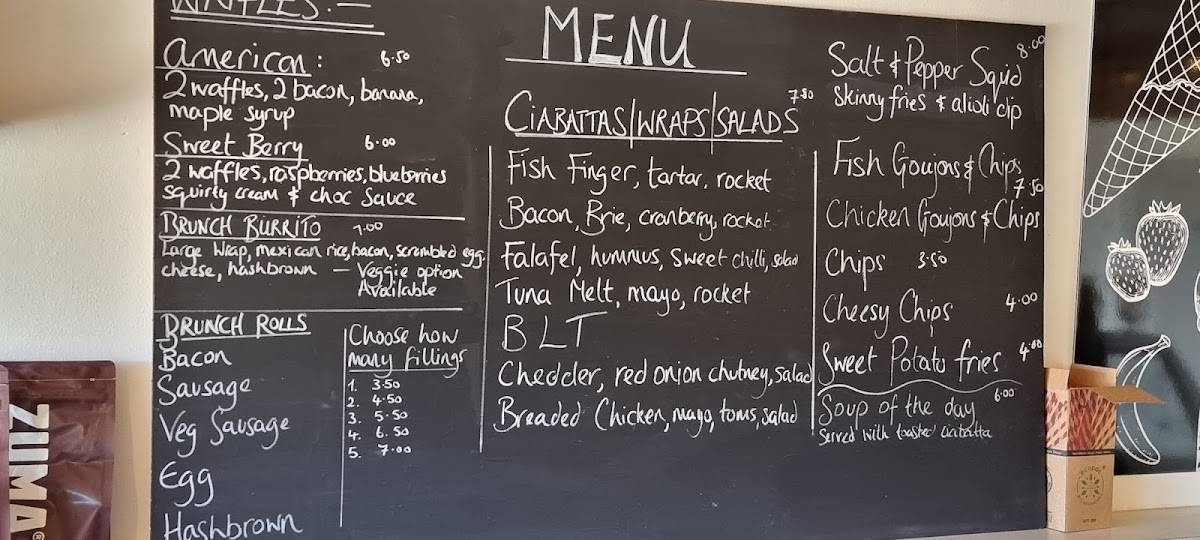 WAFFLES:-
American: 6.50
2 waffles, 2 bacon, banana,
maple syrup
Sweet Berry 6.00
2 waffles, raspberries, blueberries
squirty cream & choc sauce
BRUNCH BURRITO 7.00
Large wrap, mexican rice, bacon, scrambled egg,
cheese, hashbrown — Veggie option
Available
BRUNCH ROLLS
Bacon
Sausage
Veg Sausage
Egg
Hashbrown
Choose how
many fillings
1. 3.50
2. 4.50
3. 5.50
4. 6.50
5. 7.00
MENU
CIABATTAS|WRAPS|SALADS 7.50
Fish Finger, tartar, rocket
Bacon, Brie, cranberry, rocket
Falafel, hummus, Sweet chilli, salad
Tuna Melt, mayo, rocket
BLT
Chedder, red onion chutney, salad
Breaded Chicken, mayo, toms, salad
Salt & Pepper Squid 8.00
Skinny fries & alioli dip
Fish Goujons & Chips
7.50
Chicken Goujons & Chips
Chips 3.50
Cheesy Chips 4.00
Sweet Potato fries 4.00
Soup of the day 6.00
Served with toasted ciabatta
ZUMA®